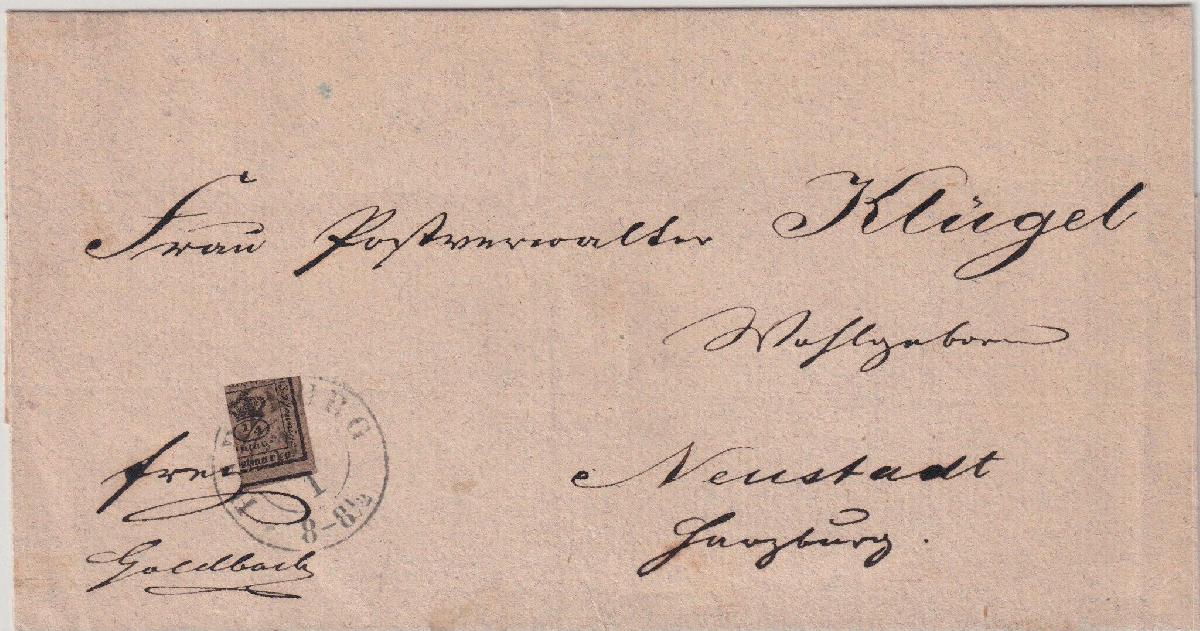 Frau Postverwalter Klügel
Wohlgeboren
Neustadt
Harzburg.
frei
Goldbach
1/4
1
8-8½